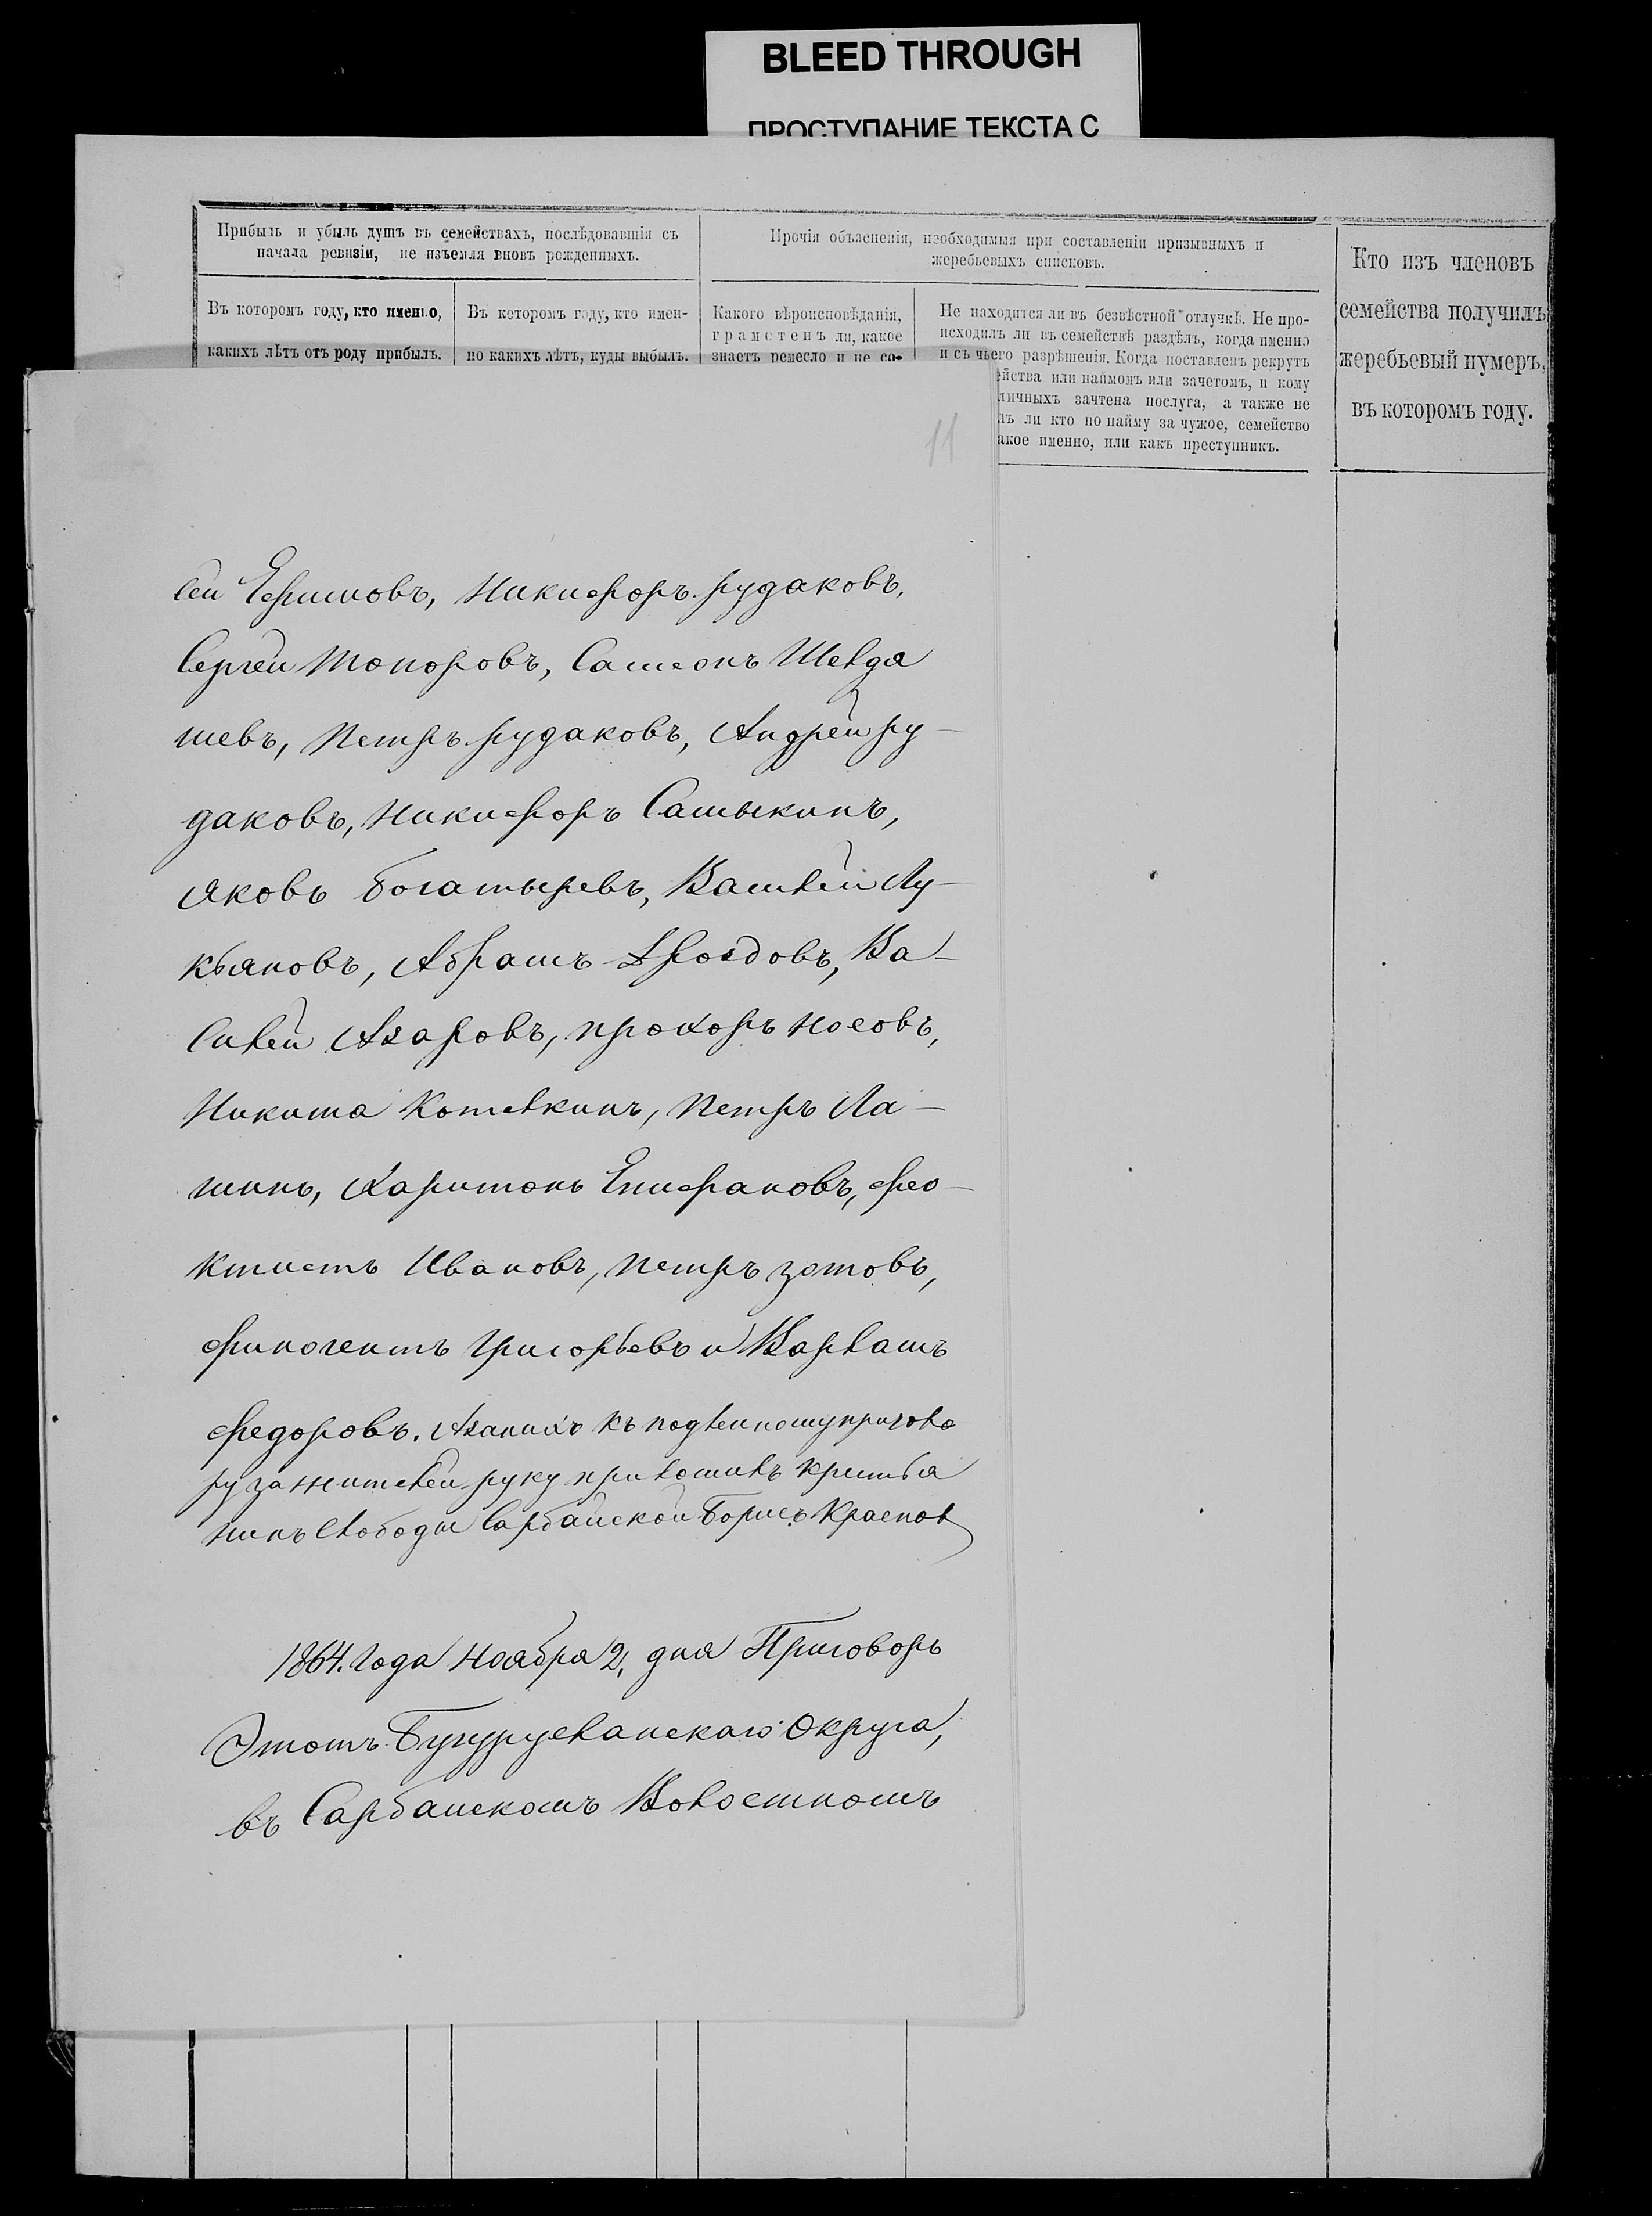 BLEED THROUGH
ПРОСТУПАНИЕ ТЕКСТА С
Прибыль и убыль душъ въ семействахъ, послѣдовавшія съ
начала ревизіи, не изъемля вновь рожденныхъ.
Прочія объясненія, необходимыя при составленіи призывныхъ и
жеребьевыхъ списковъ.
Кто изъ членовъ
семейства получилъ
жеребьевый нумеръ,
въ которомъ году.
Въ которомъ году, кто именно,
какихъ лѣтъ отъ роду прибылъ.
Въ которомъ году, кто имен-
но какихъ лѣтъ, куды выбылъ.
Какого вѣроисповѣданія,
грамотенъ ли, какое
знаетъ ремесло и не со-
Не находится ли въ безвѣстной отлучкѣ. Не про-
исходилъ ли въ семействѣ раздѣлъ, когда именно
и съ чьего разрѣшенія. Когда поставленъ рекрутъ
ейства или наймомъ или зачетомъ, и кому
личныхъ зачтена послуга, а также не
лъ ли кто по найму за чужое, семейство
акое именно, или какъ преступникъ.
11
сей Ефимовъ, Никифоръ Рудаковъ,
Сергей Топоровъ, Самсонъ Шелдя
шевъ, Петръ Рудаковъ, Андрей Ру-
даковъ, Никифоръ Самыкинъ,
Яковъ Богатыревъ, Василей Лу-
кьяновъ, Абрамъ Дроздовъ, Ва-
силей Азаровъ, Прохоръ Носовъ,
Никита Котелкинъ, Петръ Ла-
шинъ, Харитонъ Епифановъ, Фео-
ктистъ Ивановъ, Петръ Зотовъ,
Финогентъ Григорьевъ и Варламъ
Федоровъ. Азанихъ къ подленному пригово
ру за жителей руку приложилъ крестья
нинъ Слободы Сарбайской Борисъ Краснов
1864. Года Ноября 2, дня Приговоръ
Этотъ Бугурусланскаго Округа,
въ Сарбайскомъ Волостномъ